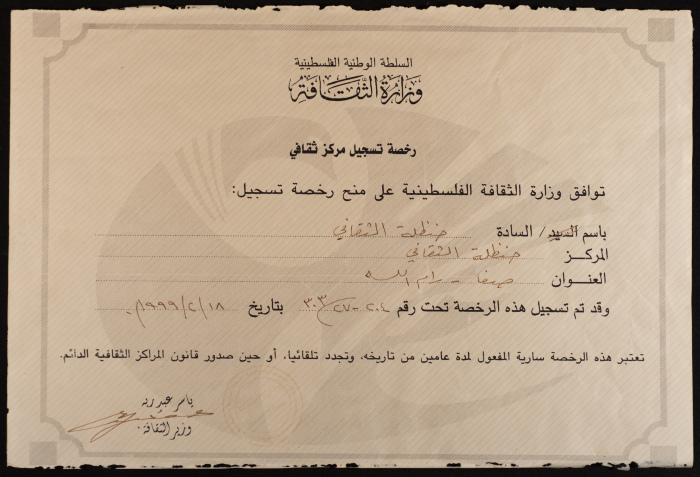 السلطة الوطنية الفلسطينية
وزارة الثقافة
رخصة تسجيل مركز ثقافي
توافق وزارة الثقافة الفلسطينية على منح رخصة تسجيل:
باسم السيد/ السادة حنظلة الثقافي
المركز حنظلة الثقافي
العنوان صفا - رام الله
وقد تم تسجيل هذه الرخصة تحت رقم بتاريخ ١٩٩٩/٢/١٨
تعتبر هذه الرخصة سارية المفعول لمدة عامين من تاريخه، وتجدد تلقائيا، أو حين صدور قانون المراكز الثقافية الدائم.
ياسر عبد ربه
وزير الثقافة